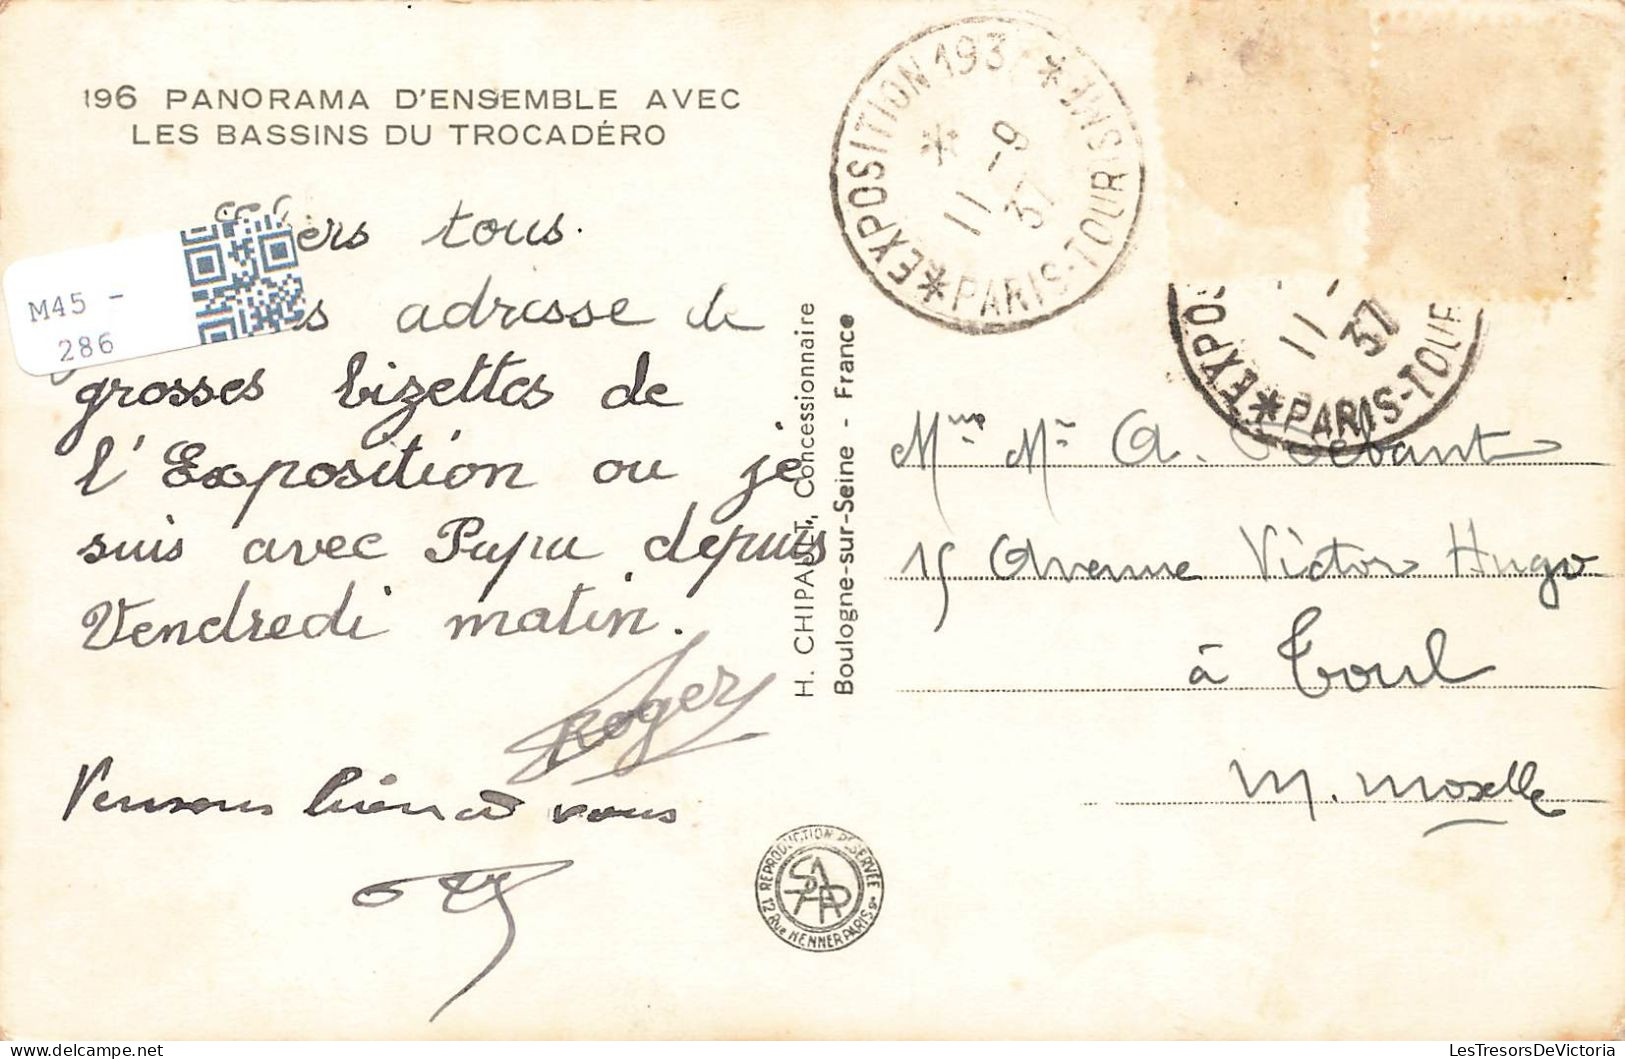 196 PANORAMA D'ENSEMBLE AVEC
LES BASSINS DU TROCADÉRO
tous.
adresse de
grosses bizettes de
l'Exposition ou je
suis avec Papa depuis
Vendredi matin.
Roger
Pensons bien à vous
M45 -
286
H. CHIPAULT, Concessionnaire
Boulogne-sur-Seine - France
REPRODUCTION RÉSERVÉE
12 Rue HENNER PARIS 9e
SAPR
*EXPOSITION 193 *
PARIS-TOURISME*
*
11 -9
37
EXPOS
*PARIS-TOUR
11
37
Mme Mr A.
15 Avenue Victor Hugo
à Toul
M. Moselle
LesTresorsDeVictoria